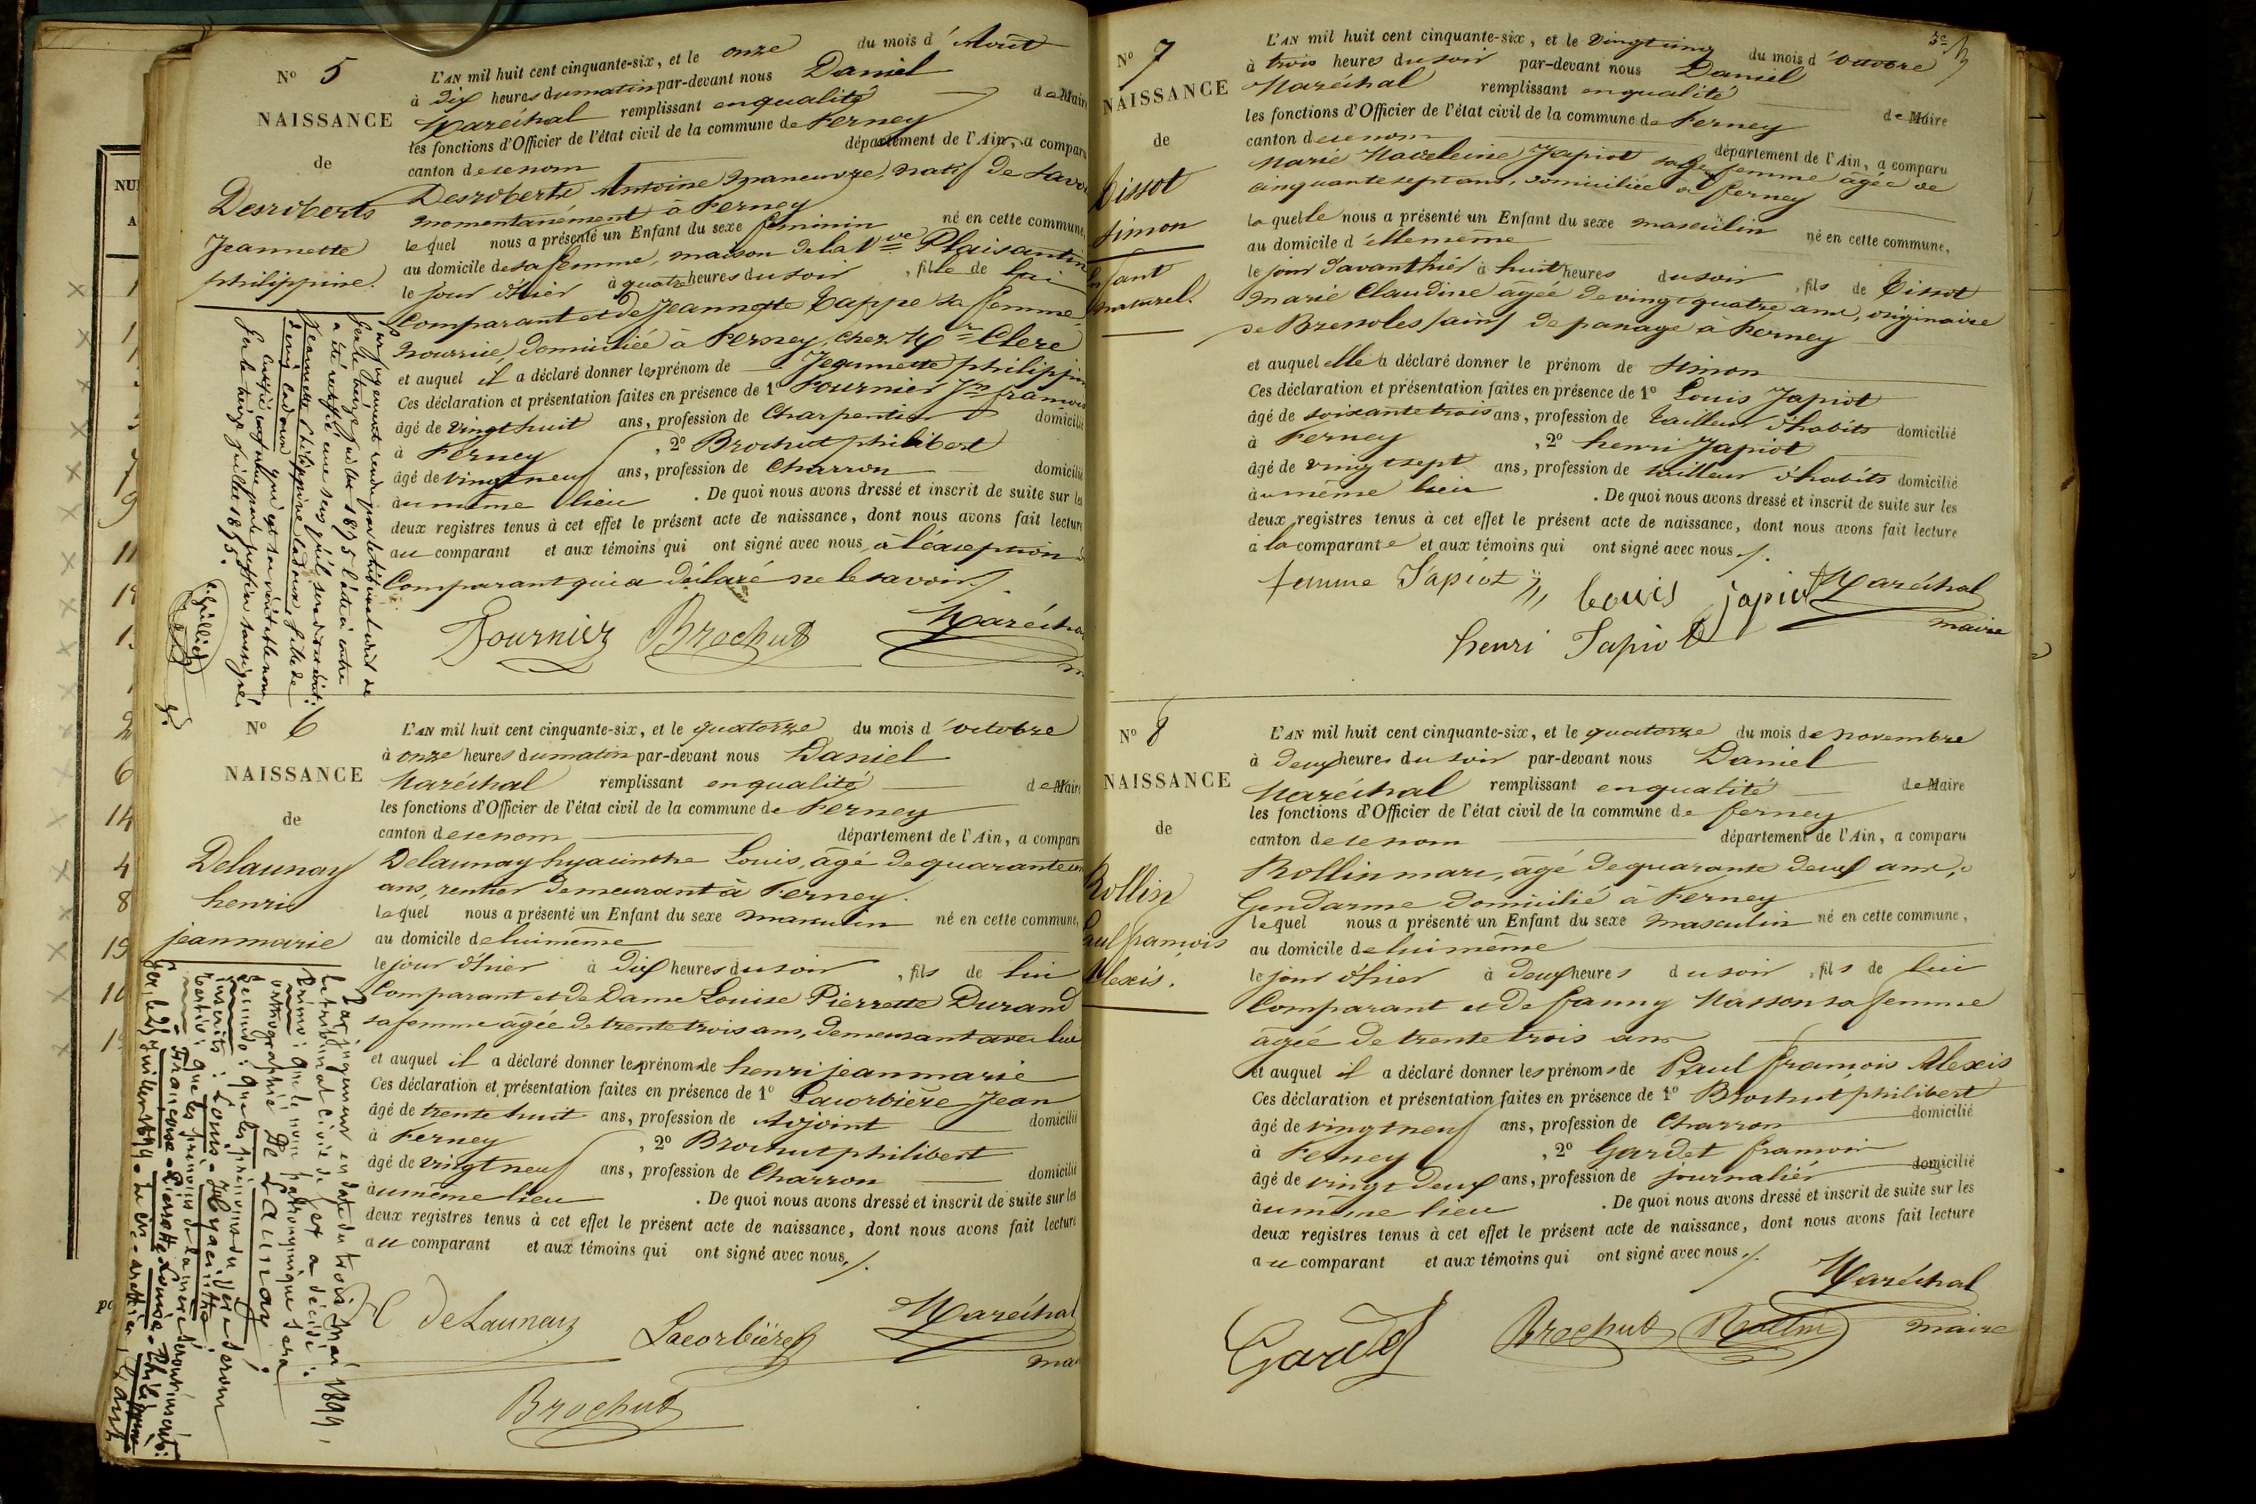 Nº 5
NAISSANCE
de
Desroberts
Jeannette
philippine.
L'AN mil huit cent cinquante-six, et le onze du mois d'Août
à dix heures du matin par-devant nous Daniel
Maréchal remplissant en qualité de Maire
les fonctions d'Officier de l'état civil de la commune de Ferney
canton de ce nom département de l'Ain, a comparu
Desroberts Antoine Manœuvre, natif de
momentanément à Ferney
lequel nous a présenté un Enfant du sexe féminin né en cette commune,
au domicile de sa femme, maison de la Vve Plaisantin
le jour d'hier à quatre heures du soir, fille de lui
Comparant et de Jeannette Cappe sa femme,
nourrice, domiciliée à Ferney, chez Mr Clerc
et auquel il a déclaré donner les prénom de Jeannette philippine
Ces déclaration et présentation faites en présence de 1º Fournier Jn françois
âgé de vingt huit ans, profession de Charpentier domicilié
à Ferney, 2º Brochut philibert
âgé de vingt neuf ans, profession de Charron domicilié
au même lieu. De quoi nous avons dressé et inscrit de suite sur les
deux registres tenus à cet effet le présent acte de naissance, dont nous avons fait lecture
au comparant et aux témoins qui ont signé avec nous, à l'exception
Comparant qui a déclaré ne le savoir./.
Fournier Brochut Maréchal
Par jugement rendu par le tribunal civil de
Gex le treize juillet 1875 l'acte ci contre
a été rectifié en ce sens qu'il sera
Jeannette Philippine Cadoux fille de
Cadoux qui est son véritable nom
Gex le treize juillet 1875.
Nº 6
NAISSANCE
de
Delaunay
henri
jean marie
L'AN mil huit cent cinquante-six, et le quatorze du mois d'octobre
à onze heures du matin par-devant nous Daniel
Maréchal remplissant en qualité de Maire
les fonctions d'Officier de l'état civil de la commune de Ferney
canton de ce nom département de l'Ain, a comparu
Delaunay hyacinthe Louis, âgé de quarante un
ans, rentier demeurant à Ferney.
lequel nous a présenté un Enfant du sexe masculin né en cette commune,
au domicile de lui même
le jour d'hier à dix heures du soir, fils de lui
Comparant et de Dame Louise Pierrette Durand
sa femme âgée de trente trois ans, demeurant avec lui
et auquel il a déclaré donner les prénoms de henri jean marie
Ces déclaration et présentation faites en présence de 1º Lacorbière Jean
âgé de trente huit ans, profession de Adjoint domicilié
à Ferney, 2º Brochut philibert
âgé de vingt neuf ans, profession de Charron domicilié
au même lieu. De quoi nous avons dressé et inscrit de suite sur les
deux registres tenus à cet effet le présent acte de naissance, dont nous avons fait lecture
au comparant et aux témoins qui ont signé avec nous./.
H deLaunay Lacorbière Maréchal
Brochut
Par jugement en date du trois mai 1899,
le tribunal civil de Gex a décidé:
Primo: que le nom patronymique sera
orthographié De Launay;
Secundo: que les prénoms du père seront
inscrits: Louis-Hyacinthe;
Tertio: que les prénoms de la mère seront inscrits:
Françoise-Pierrette Louise-Philippine
Gex, le 29 juillet 1899.
Nº 7
NAISSANCE
de
Tissot
Simon
Enfant
naturel.
L'AN mil huit cent cinquante-six, et le vingt cinq du mois d'octobre
à trois heures du soir par-devant nous Daniel
Maréchal remplissant en qualité de Maire
les fonctions d'Officier de l'état civil de la commune de Ferney
canton de ce nom département de l'Ain, a comparu
Marie Madeleine Japiot sage femme âgée de
cinquante sept ans, domiciliée à ferney
laquelle nous a présenté un Enfant du sexe masculin né en cette commune,
au domicile d'elle même
le jour d'avant hier à huit heures du soir, fils de Tissot
marie Claudine âgée de vingt quatre ans, originaire
de Bressoles (ain) de passage à Ferney
et auquel elle a déclaré donner le prénom de Simon
Ces déclaration et présentation faites en présence de 1º Louis Japiot
âgé de soixante trois ans, profession de tailleur d'habits domicilié
à Ferney, 2º henri Japiot
âgé de vingt sept ans, profession de tailleur d'habits domicilié
au même lieu. De quoi nous avons dressé et inscrit de suite sur les
deux registres tenus à cet effet le présent acte de naissance, dont nous avons fait lecture
à la comparante et aux témoins qui ont signé avec nous./.
femme Japiot Louis japiot Maréchal
maire
henri Japiot
Nº 8
NAISSANCE
de
Rollin
Paul françois
Alexis.
L'AN mil huit cent cinquante-six, et le quatorze du mois de novembre
à deux heures du soir par-devant nous Daniel
Maréchal remplissant en qualité de Maire
les fonctions d'Officier de l'état civil de la commune de ferney
canton de ce nom département de l'Ain, a comparu
Rollin marc, âgé de quarante deux ans,
Gendarme domicilié à Ferney
lequel nous a présenté un Enfant du sexe masculin né en cette commune,
au domicile de lui même
le jour d'hier à deux heures du soir, fils de lui
Comparant et de fanny Masson sa femme
âgée de trente trois ans
et auquel il a déclaré donner les prénoms de Paul françois Alexis
Ces déclaration et présentation faites en présence de 1º Brochut philibert
âgé de vingt neuf ans, profession de Charron domicilié
à Ferney, 2º Gardet françois
âgé de vingt deux ans, profession de journalier domicilié
au même lieu. De quoi nous avons dressé et inscrit de suite sur les
deux registres tenus à cet effet le présent acte de naissance, dont nous avons fait lecture
au comparant et aux témoins qui ont signé avec nous./.
Maréchal
Gardet Brochut Rollin maire